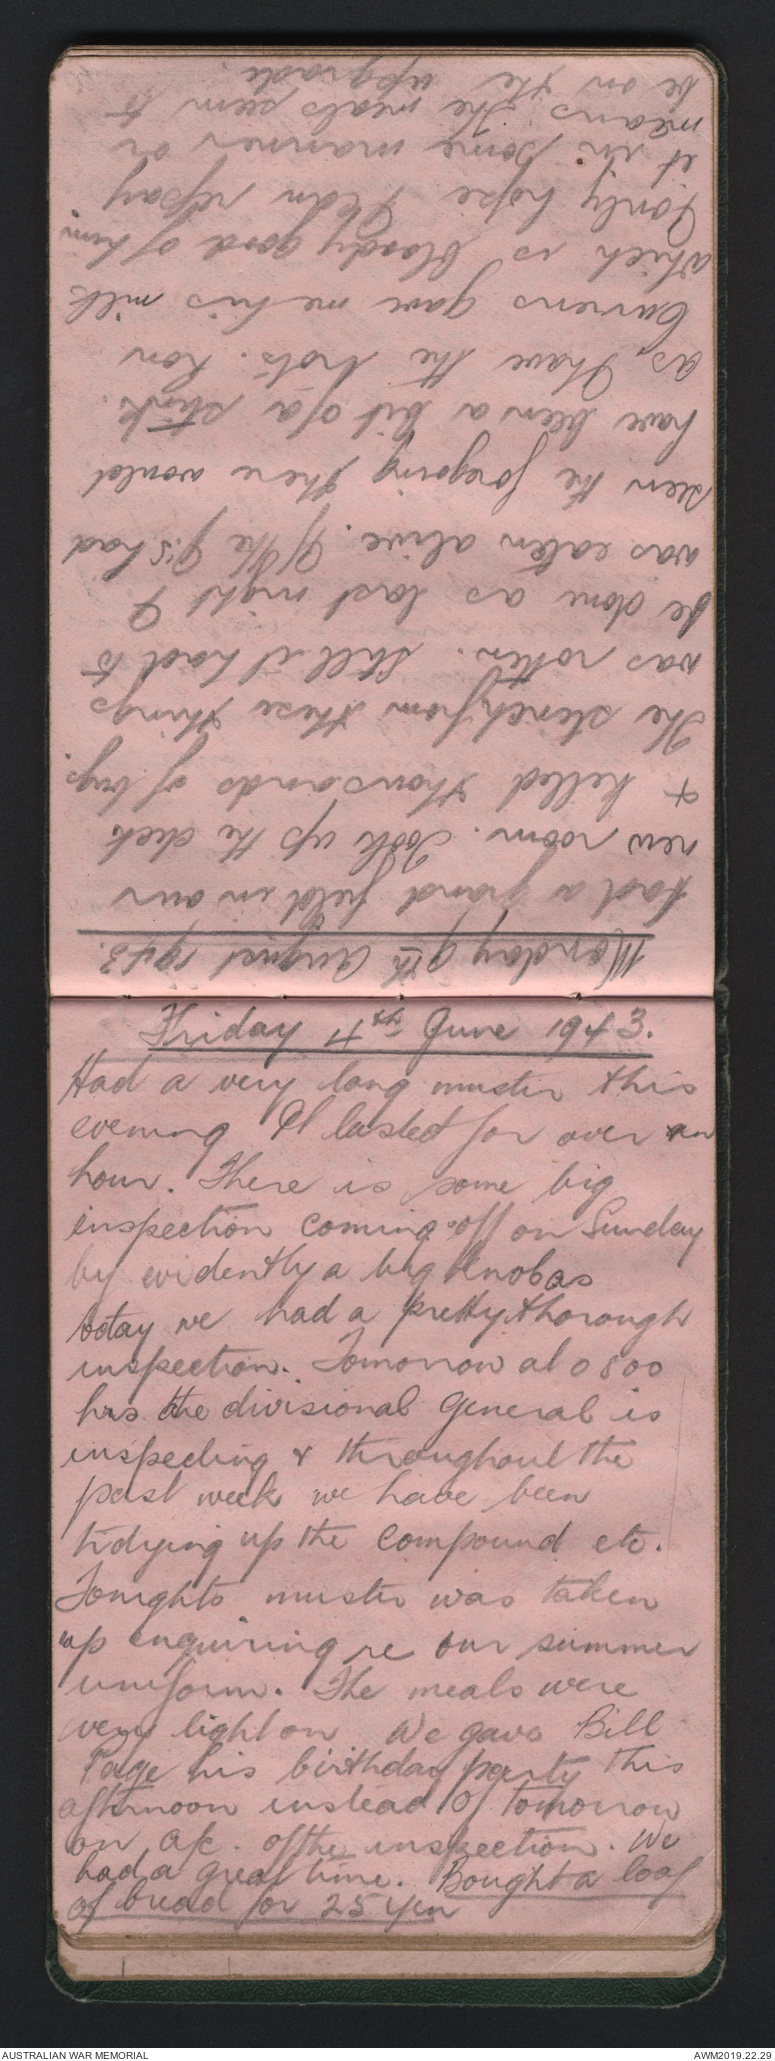 Monday 9th August 1943.
Had a grand field in our
new room. Took up the deck
& killed thousands of bugs.
The stench from these things
was rotten. Still it had to
be done as last night I
was eaten alive. If the J's had
seen the foregoing there would
have been a bit of a stink.
as I have the trots. Ron
Currens gave me his milk
which is bloody good of him.
I only hope I can repay
it in some manner or
means. The meals seem to
be on the upgrade.
Friday 4th June 1943.
Had a very long muster this
evening It lasted for over an
hour. There is some big
inspection coming off on Sunday
by evidently a big knob as
today we had a pretty thorough
inspection. Tomorrow at 0800
hrs the divisional General is
inspecting & throughout the
past week we have been
tidying up the compound etc.
Tonights muster was taken
up enquiring re our summer
uniform. The meals were
very light on We gave Bill
Page his birthday party this
afternoon instead of tomorrow
on a/c. of the inspection. We
had a great time. Bought a loaf
of bread for 25 yen
AUSTRALIAN WAR MEMORIAL
AWM2019.22.29